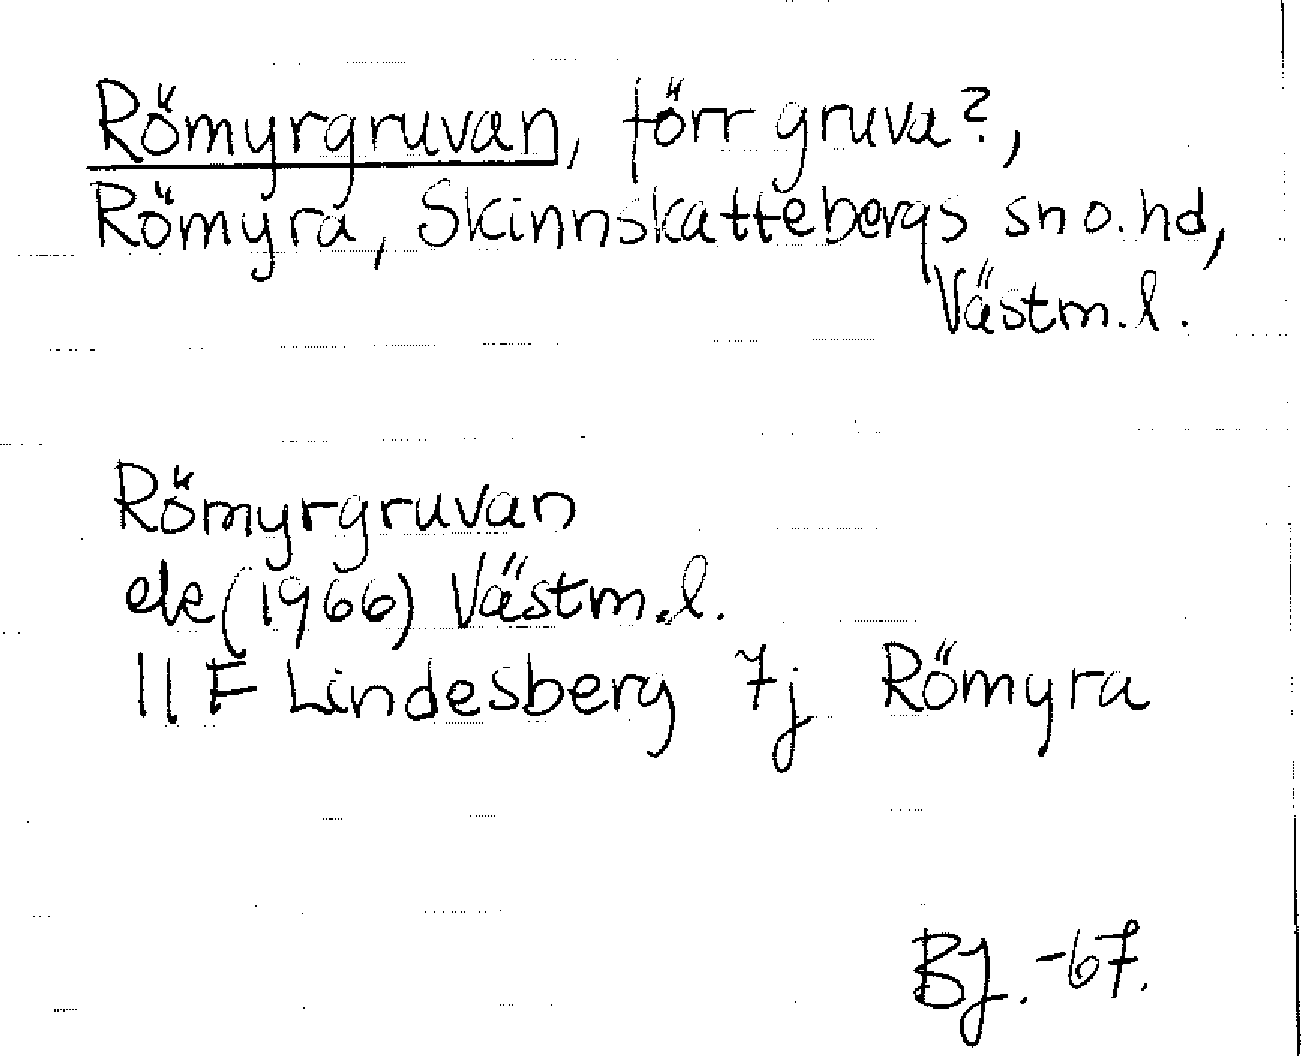 Römyrgruvan, förr gruva?,
Römyra, Skinnskattebergs sn o. hd,
Västm.l.
Römyrgruvan
ek (1966) Västm.l.
11 F Lindesberg 7j Römyra
BJ. -67.